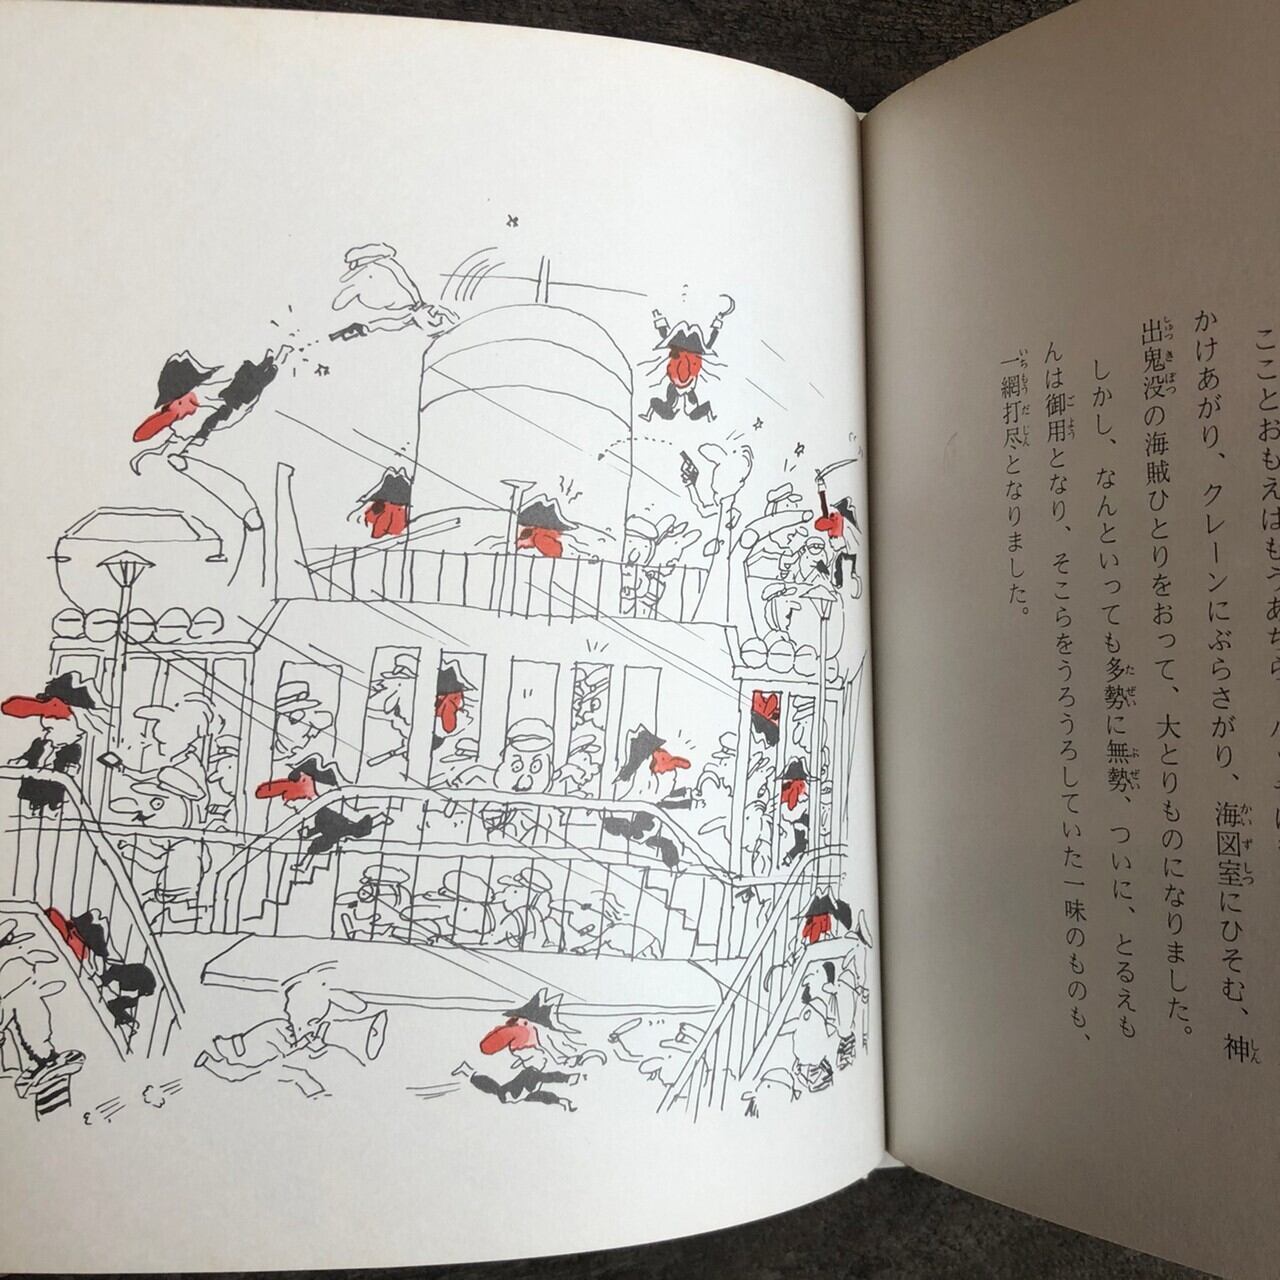 こことおもえばもうあちら、
かけあがり、クレーンにぶらさがり、海図室にひそむ、神
出鬼没の海賊ひとりをおって、大とりものになりました。
しかし、なんといっても多勢に無勢、ついに、とるえも
んは御用となり、そこらをうろうろしていた一味のものも、
一網打尽となりました。